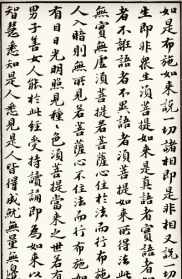 如是布施如来說一切諸相即是非相又說一切
生即非衆生湏菩提如来是真語者實語
者不誑語者不異語者湏菩提如来所得法此
無實無虛湏菩提若菩薩心住於法而行布施
人入暗則無所見若菩薩心不住法而行布施
有目日光明照見種々色湏菩提當来之世若有
男子善女人能於此經受持讀誦即為如来以
智慧悉知是人悉見是人皆得成就無量無邊